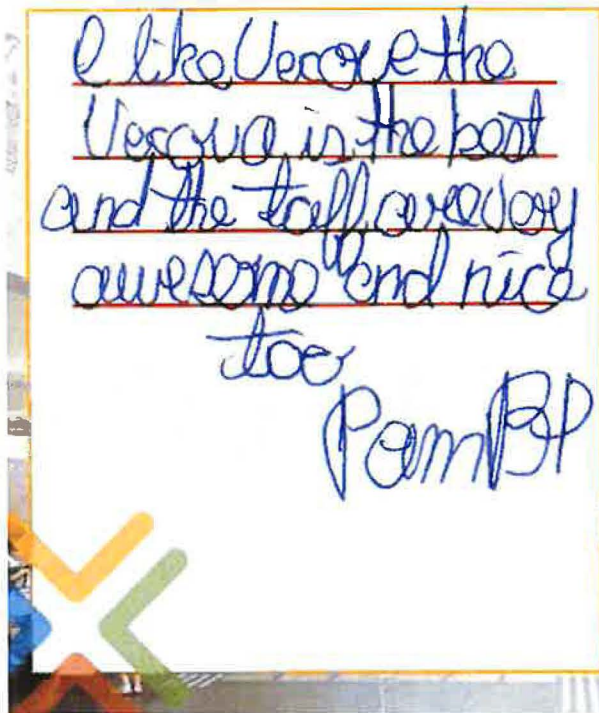 I like Vecova the
Vecova is the best
and the taff are very
awesome and nice
too
Pam BP